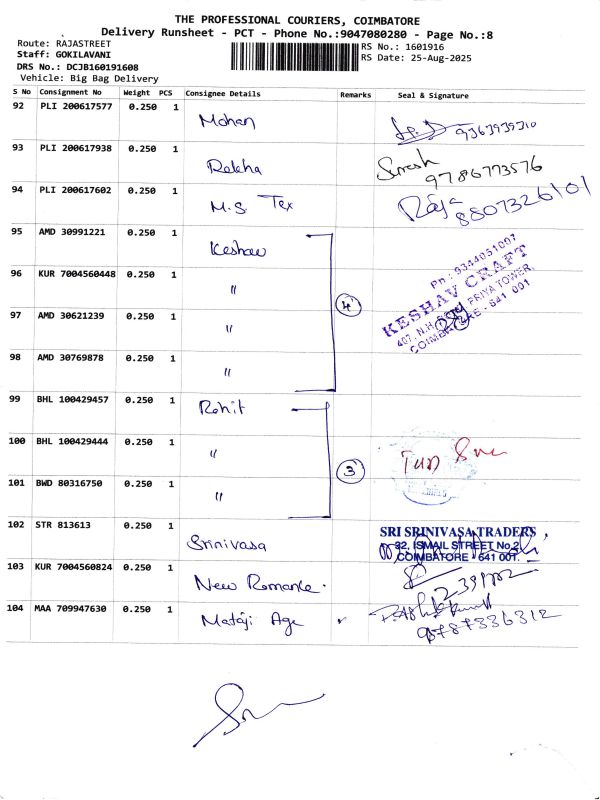 THE PROFESSIONAL COURIERS, COIMBATORE
Delivery Runsheet - PCT - Phone No.:9047080280 - Page No.:8
Route: RAJASTREET
Staff: GOKILAVANI
DRS No.: DCJB160191608
Vehicle: Big Bag Delivery
RS No.: 1601916
RS Date: 25-Aug-2025
S No Consignment No Weight PCS Consignee Details Remarks Seal & Signature
92 PLI 200617577 0.250 1 Mohan 9363939310
93 PLI 200617938 0.250 1 Rekha Suresh 9786773576
94 PLI 200617602 0.250 1 M.S. Tex Raja 8807326101
95 AMD 30991221 0.250 1 Keshav
96 KUR 7004560448 0.250 1 "
97 AMD 30621239 0.250 1 "
98 AMD 30769878 0.250 1 "
4
Ph : 9344051007
KESHAV CRAFT
407, N.H. PRIYA TOWER,
COIMBATORE - 641 001
99 BHL 100429457 0.250 1 Rohit
100 BHL 100429444 0.250 1 "
101 BWD 80316750 0.250 1 "
3
102 STR 813613 0.250 1 Srinivasa
SRI SRINIVASA TRADERS,
32, ISMAIL STREET No.2,
COIMBATORE - 641 001.
103 KUR 7004560824 0.250 1 New Romance.
104 MAA 709947630 0.250 1 Mataji Age 9787336312